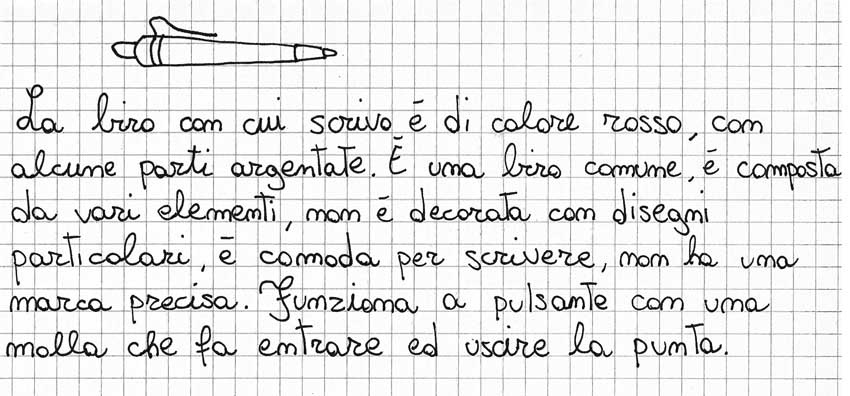 La biro con cui scrivo è di colore rosso, con
alcune parti argentate. È una biro comune, è composta
da vari elementi, non è decorata con disegni
particolari, è comoda per scrivere, non ha una
marca precisa. Funziona a pulsante con una
molla che fa entrare ed uscire la punta.